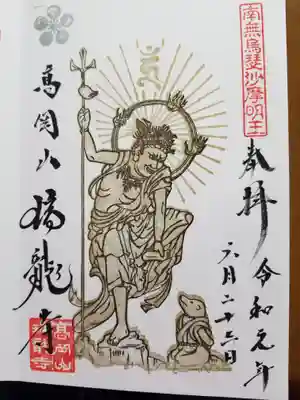 南無烏瑟沙摩明王
奉拝
令和元年
六月二十六日
高岡山
瑞龍寺
高岡山
瑞龍寺